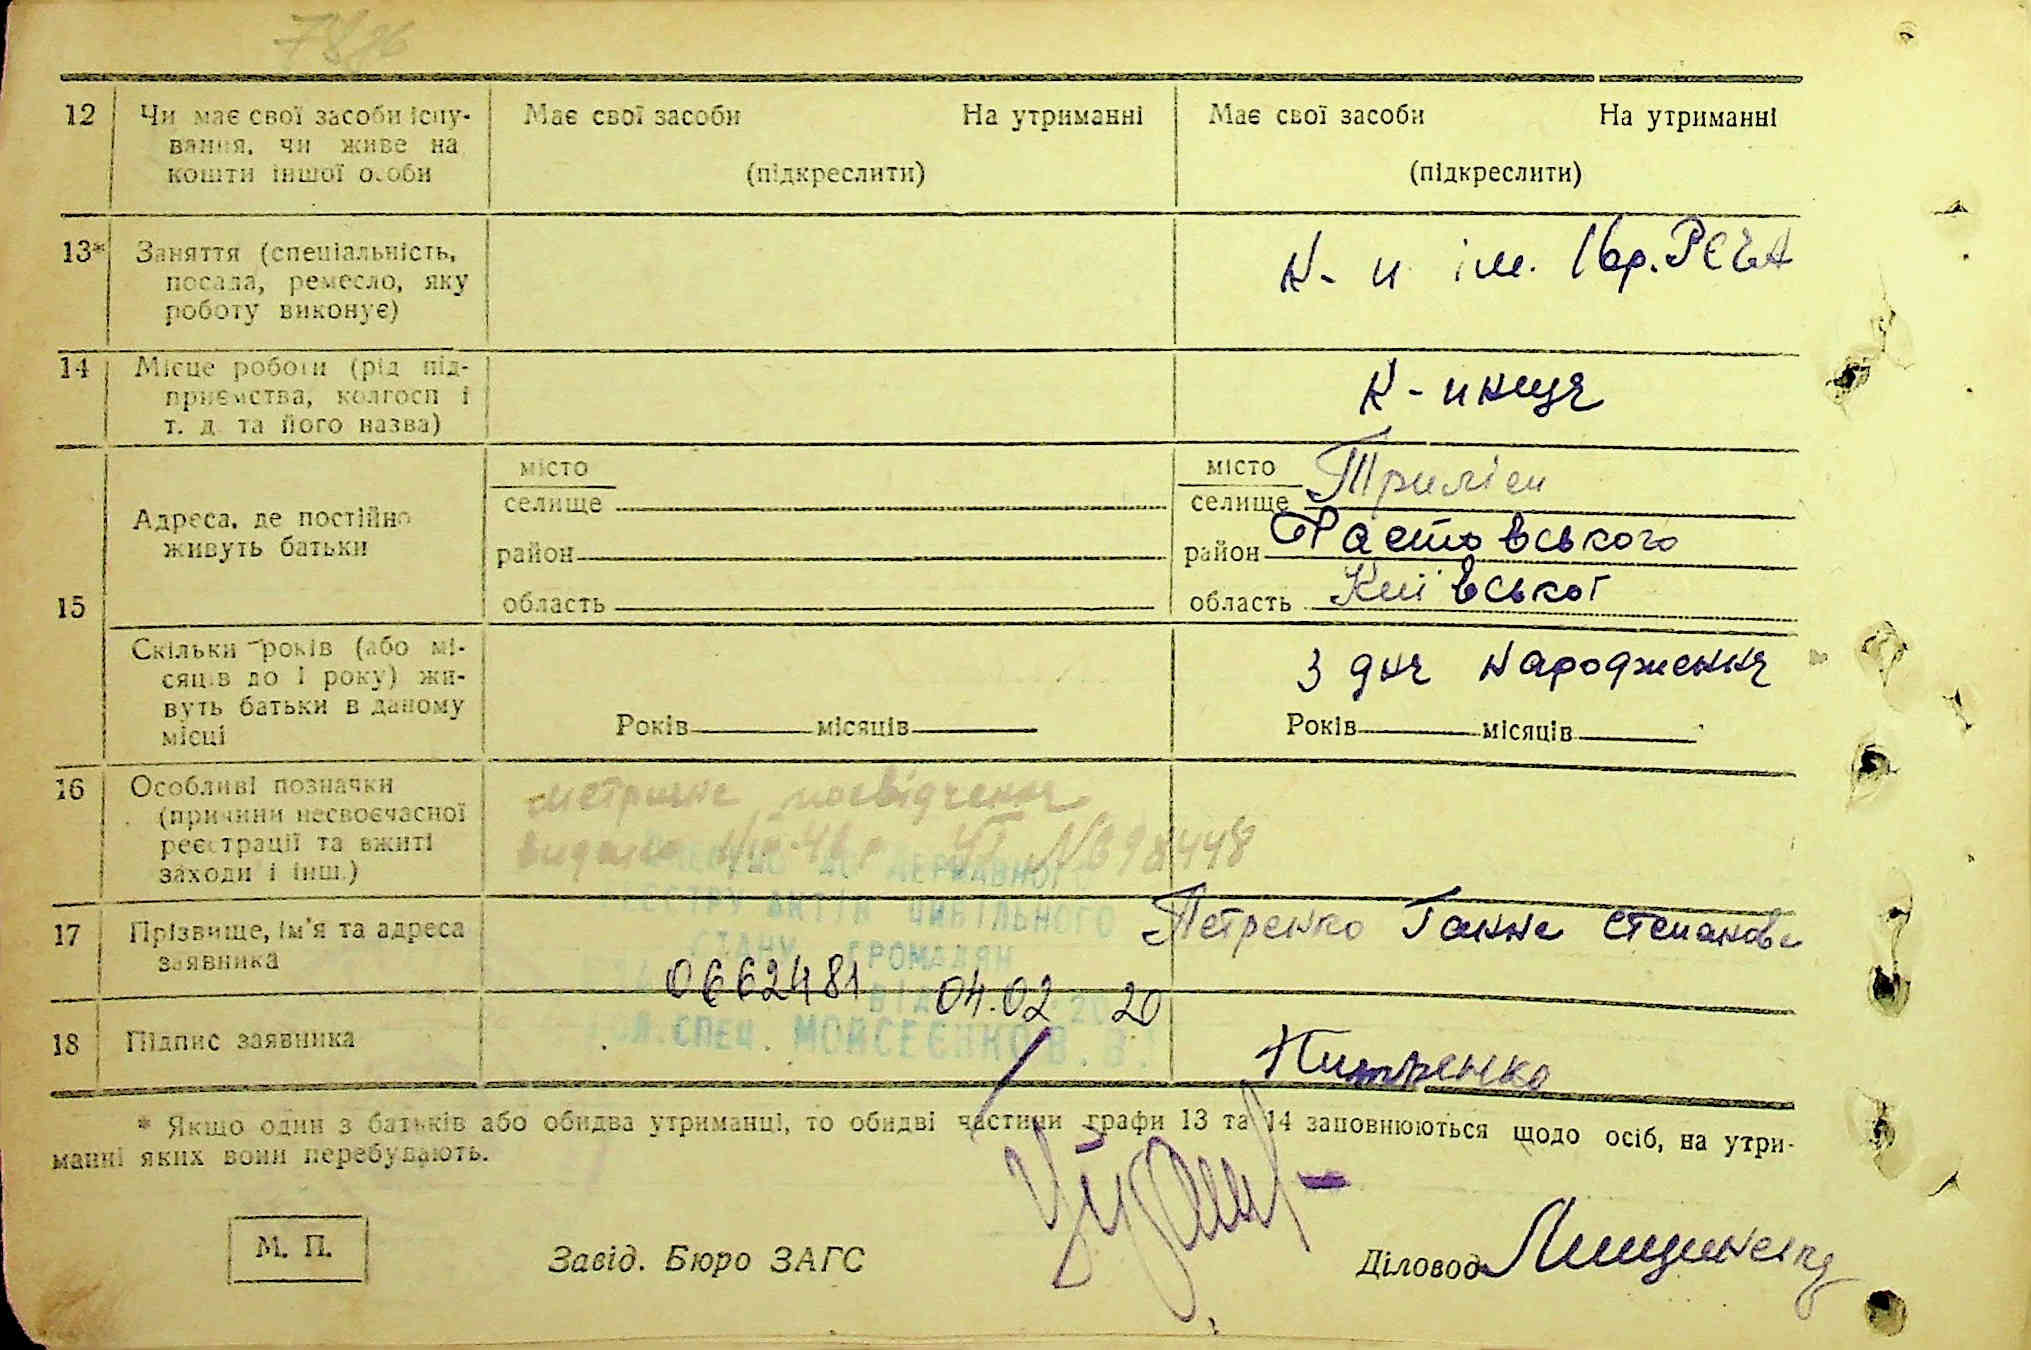 12 Чи має свої засоби існу-
вання, чи живе на
кошти іншої особи
Має свої засоби На утриманні
(підкреслити)
Має свої засоби На утриманні
(підкреслити)
13* Заняття (спеціальність,
посада, ремесло, яку
роботу виконує)
к-п ім. Iвр. РСЧА
14 Місце роботи (рід під-
приємства, колгосп і
т. д. та його назва)
к-пниця
15 Адреса, де постійно
живуть батьки
місто
селище
район
область
місто
селище Триліси
район Фастовського
область Київської
Скільки років (або мі-
сяців до 1 року) жи-
вуть батьки в даному
місці
Років місяців
З дня народження
Років місяців
16 Особливі позначки
(причини несвоєчасної
реєстрації та вжиті
заходи і інш.)
метричне посвідчення
видано 46 р. № 698448
ДО ДЕРЖАВНОГО
РЕЄСТРУ АКТІВ ЦИВІЛЬНОГО
СТАНУ ГРОМАДЯН
0662481 ВІД 04.02 2020
ГОЛ. СПЕЦ. МОЙСЕЄНКО В. В.
17 Прізвище, ім'я та адреса
заявника
Петренко Ганна Степановна
18 Підпис заявника
Питренко
* Якщо один з батьків або обидва утриманці, то обидві частини графи 13 та 14 заповнюються щодо осіб, на утри-
манні яких вони перебувають.
М. П.
Завід. Бюро ЗАГС
Діловод